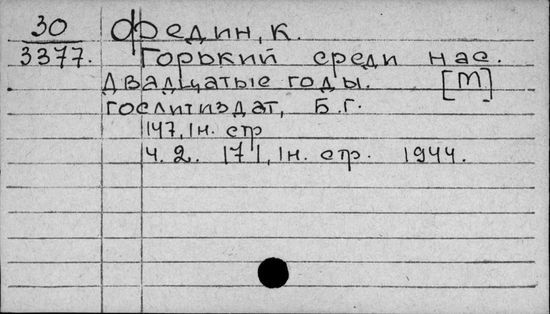 30 Федин, К.
3377. Горький среди нас.
Двадцатые годы. [М]
Гослитиздат, Б.г.
147, 1н. стр
ч. 2. 171, 1н. стр. 1944.